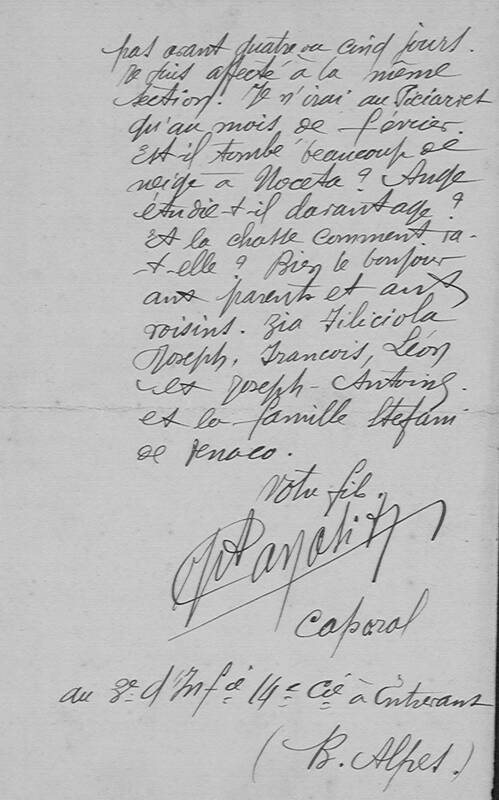 pas avant quatre ou cinq jours.
Je suis affecté à la même
section. Je n'irai au
qu'au mois de février.
Est-il tombé beaucoup de
neige à Noceta ? Ange
étudie-t-il davantage ?
Et la chasse comment va-
-t-elle ? Bien le bonjour
aux parents et aux
voisins. Zia Filiciola
Joseph, Francois, Léon
et Joseph-Antoine.
et la famille Stefani
de Venaco.
Votre fils.
Caporal
au 3e d'Infie 14e Cie à
(B. Alpes.)